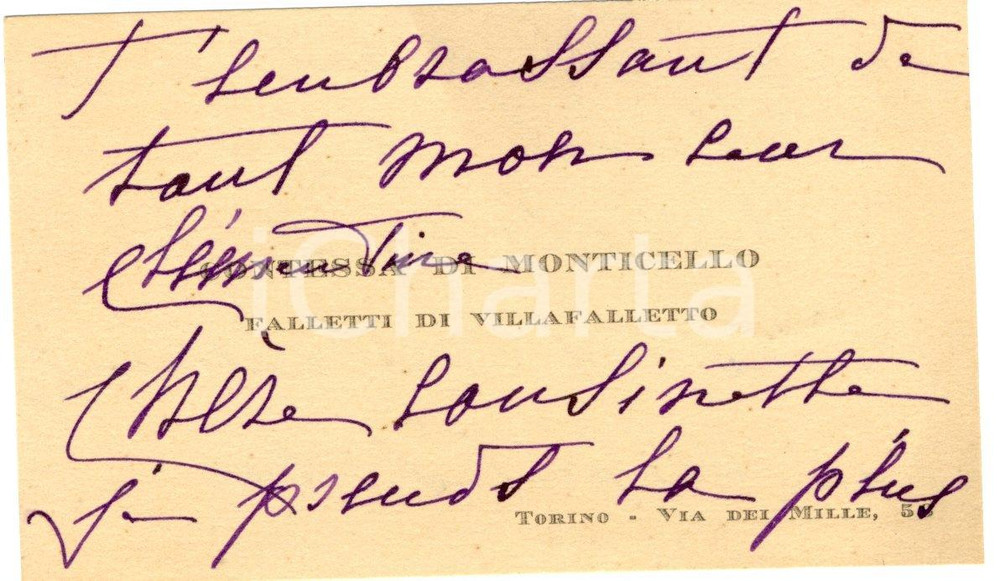 T'embrassant de
tout mon cœur
Clémentine
CONTESSA DI MONTICELLO
FALLETTI DI VILLAFALLETTO
Chère Cousinette
je prends la plus
TORINO - VIA DEI MILLE,
iCharta